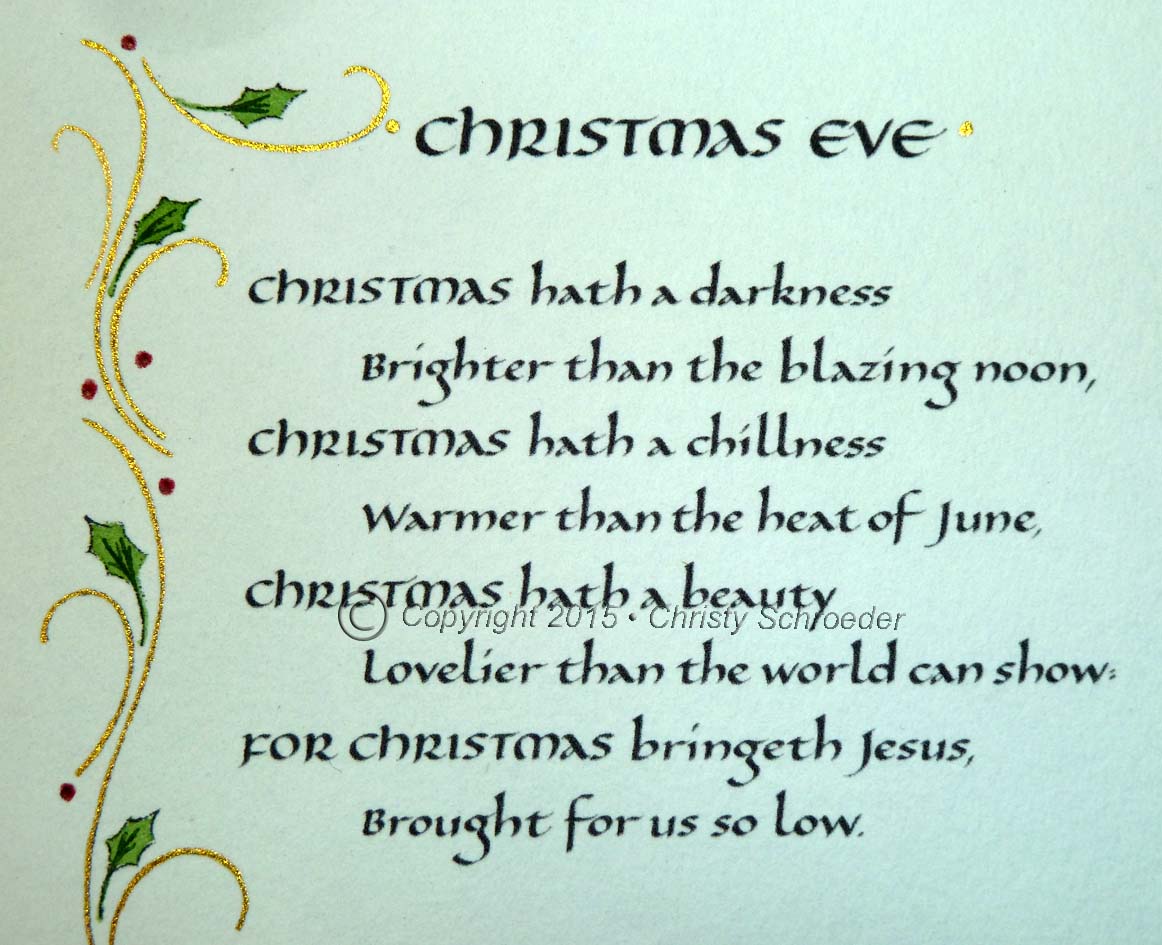 CHRISTMAS EVE
CHRISTMAS hath a darkness
Brighter than the blazing noon,
CHRISTMAS hath a chillness
Warmer than the heat of June,
CHRISTMAS hath a beauty
© Copyright 2015 · Christy Schroeder
Lovelier than the world can show:
FOR CHRISTMAS bringeth Jesus,
Brought for us so low.